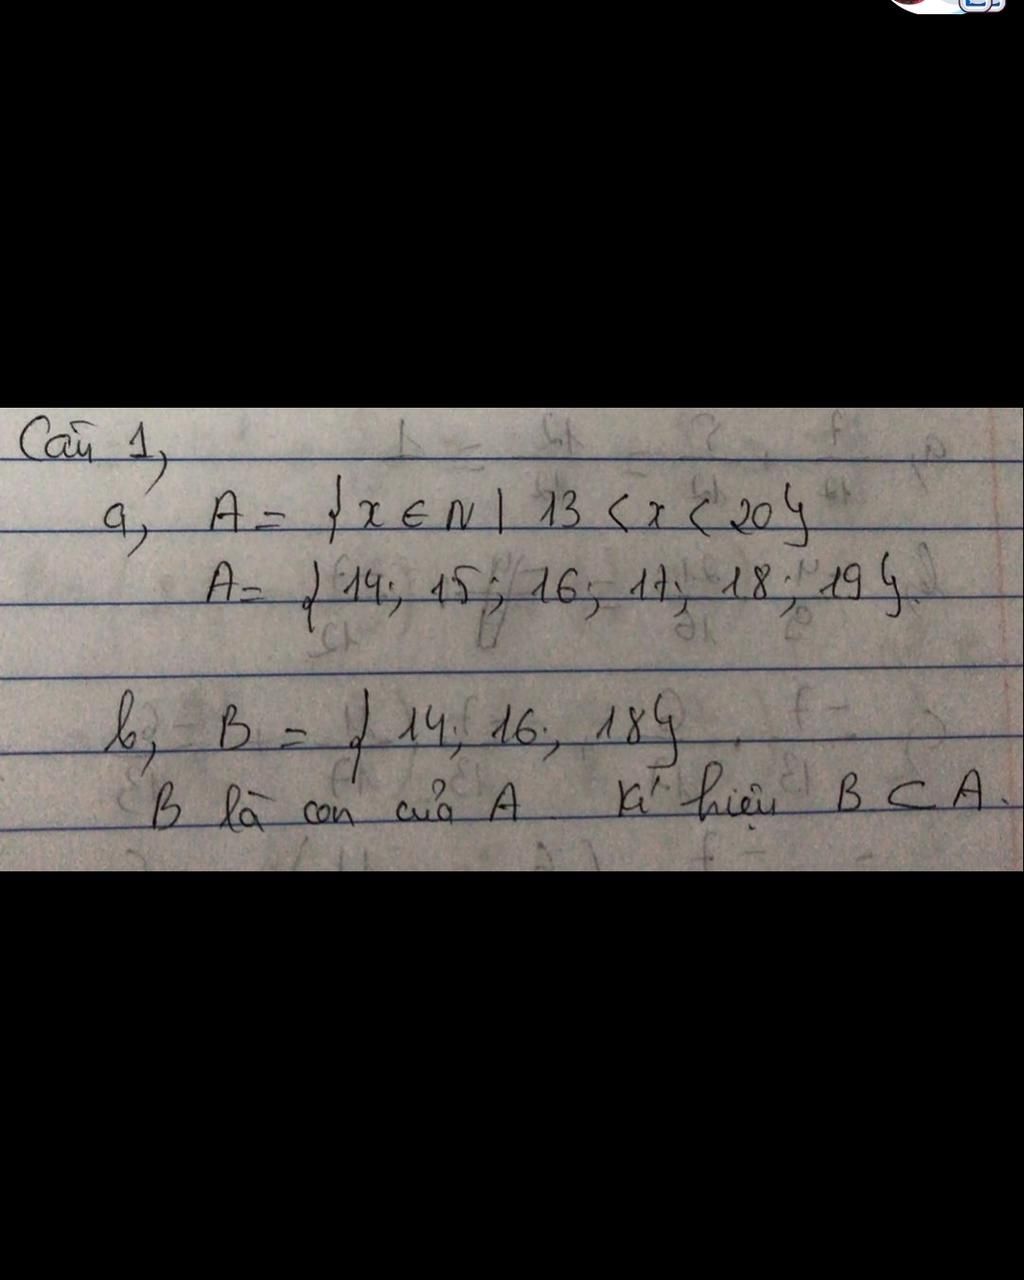 Câu 1,
a, A = { x ∈ N | 13 < x < 20 }
A = { 14; 15; 16; 17; 18; 19 }.
b, B = { 14; 16; 18 }
B là con của A. Kí hiệu B ⊂ A.